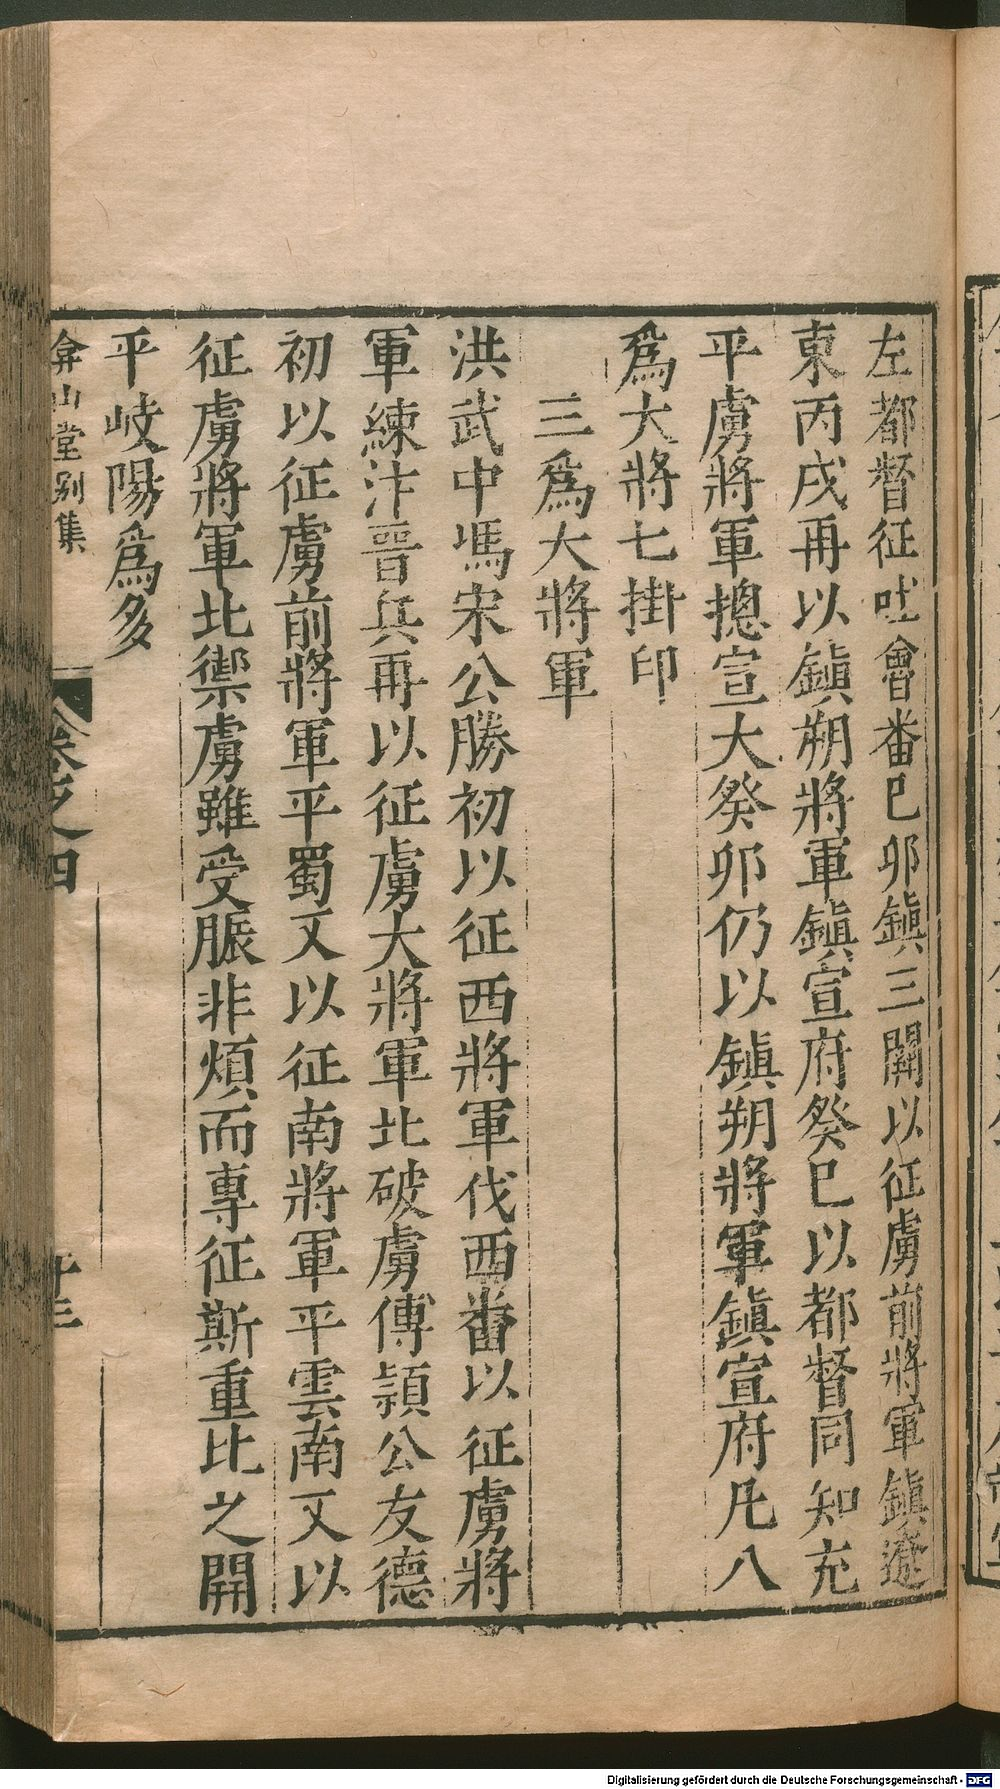 左都督征吐魯番巳卯鎮三關以征虜前將軍鎮遼
東丙戌再以鎮朔將軍鎮宣府癸巳以都督同知充
平虜將軍摠宣大癸卯仍以鎮朔將軍鎮宣府凡八
爲大將七掛印
三爲大將軍
洪武中馮宋公勝初以征西將軍伐西番以征虜將
軍練汴晉兵再以征虜大將軍北破虜傅潁公友德
初以征虜前將軍平蜀又以征南將軍平雲南又以
征虜將軍北禦虜雖受脤非煩而專征斯重比之開
平岐陽爲多
弇山堂别集
卷之四
十三
Digitalisierung gefördert durch die Deutsche Forschungsgemeinschaft - DFG